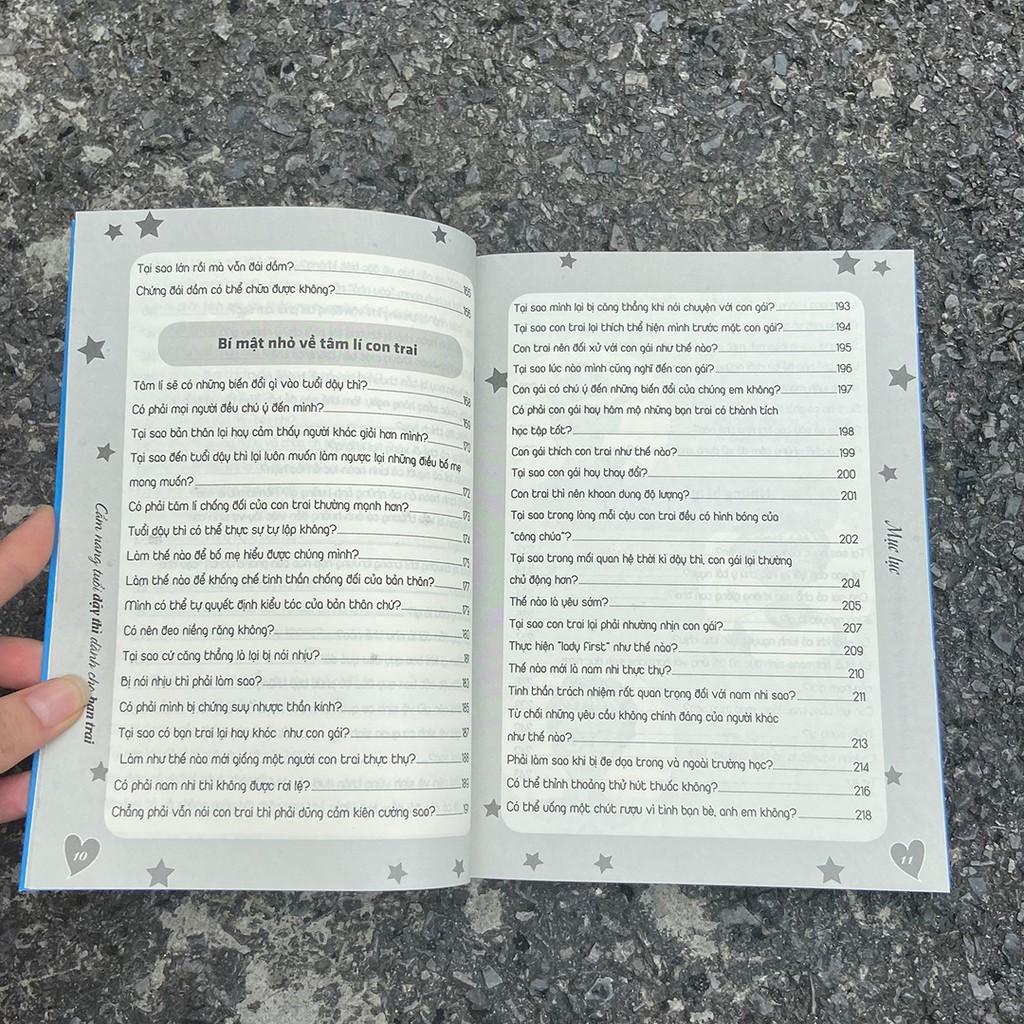 Tại sao lớn rồi mà vẫn đái dầm? 165
Chứng đái dầm có thể chữa được không? 166
Bí mật nhỏ về tâm lí con trai
Tâm lí sẽ có những biến đổi gì vào tuổi dậy thì? 168
Có phải mọi người đều chú ý đến mình? 169
Tại sao bản thân lại hay cảm thấy người khác giỏi hơn mình? 170
Tại sao đến tuổi dậy thì lại luôn muốn làm ngược lại những điều bố mẹ
mong muốn? 172
Có phải tâm lí chống đối của con trai thường mạnh hơn? 173
Tuổi dậy thì có thể thực sự tự lập không? 174
Làm thế nào để bố mẹ hiểu được chúng mình? 175
Làm thế nào để khống chế tinh thần chống đối của bản thân? 177
Mình có thể tự quyết định kiểu tóc của bản thân chứ? 179
Có nên đeo niềng răng không? 180
Tại sao cứ căng thẳng là lại bị nói nhịu? 181
Bị nói nhịu thì phải làm sao? 183
Có phải mình bị chứng suy nhược thần kinh? 185
Tại sao có bạn trai lại hay khóc như con gái? 187
Làm như thế nào mới giống một người con trai thực thụ? 188
Có phải nam nhi thì không được rơi lệ? 189
Chẳng phải vẫn nói con trai thì phải dũng cảm kiên cường sao? 191
Cẩm nang tuổi dậy thì dành cho bạn trai
10
Tại sao mình lại bị căng thẳng khi nói chuyện với con gái? 193
Tại sao con trai lại thích thể hiện mình trước mặt con gái? 194
Con trai nên đối xử với con gái như thế nào? 195
Tại sao lúc nào mình cũng nghĩ đến con gái? 196
Con gái có chú ý đến những biến đổi của chúng em không? 197
Có phải con gái hay hâm mộ những bạn trai có thành tích
học tập tốt? 198
Con gái thích con trai như thế nào? 199
Tại sao con gái hay thay đổi? 200
Con trai thì nên khoan dung độ lượng? 201
Tại sao trong lòng mỗi cậu con trai đều có hình bóng của
"công chúa"? 202
Tại sao trong mối quan hệ thời kì dậy thì, con gái lại thường
chủ động hơn? 204
Thế nào là yêu sớm? 205
Tại sao con trai lại phải nhường nhịn con gái? 207
Thực hiện "lady first" như thế nào? 209
Thế nào mới là nam nhi thực thụ? 210
Tinh thần trách nhiệm rất quan trọng đối với nam nhi sao? 211
Từ chối những yêu cầu không chính đáng của người khác
như thế nào? 213
Phải làm sao khi bị đe dọa trong và ngoài trường học? 214
Có thể thỉnh thoảng thử hút thuốc không? 216
Có thể uống một chút rượu vì tình bạn bè, anh em không? 218
Mục lục
11